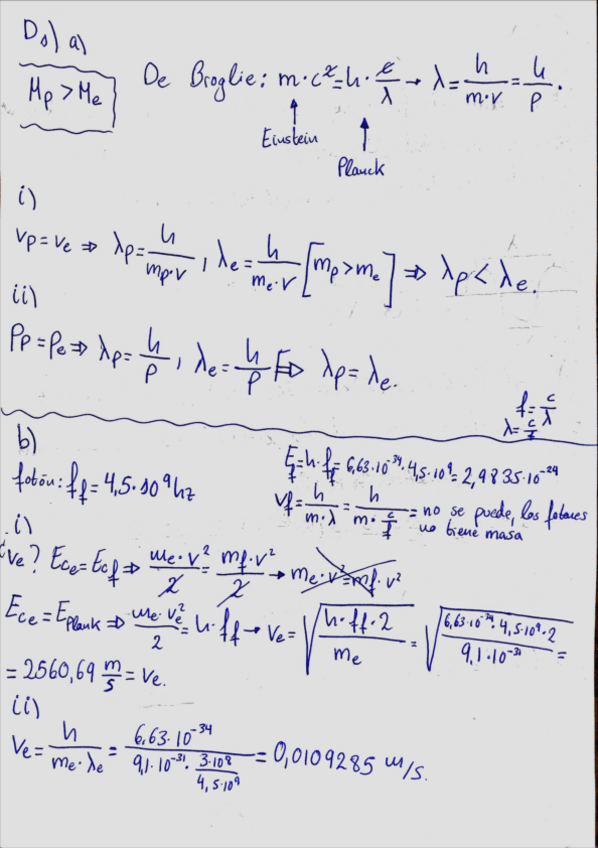 D₁) a)
Mp > Me
De Broglie: m·c² = h·c/λ → λ = h/(m·v) = h/p.
Einstein
Planck
i)
vp = ve ⇒ λp = h/(mp·v), λe = h/(me·v) [mp > me] ⇒ λp < λe.
ii)
Pp = Pe ⇒ λp = h/p, λe = h/p ⇒ λp = λe.
f = c/λ
λ = c/f
b)
fotón: f_f = 4,5·10⁹ hz
E_f = h·f_f = 6,63·10⁻³⁴·4,5·10⁹ = 2,9835·10⁻²⁴
v_f = h/(m·λ) = h/(m·c/f) = no se puede, los fotones
no tiene masa
i)
¿ve? Ec_e = Ec_f ⇒ me·v²/2 = mf·v²/2 → me·v² = mf·v²
Ec_e = E_Plank ⇒ me·ve²/2 = h·f_f → ve = √(h·ff·2/me) = √(6,63·10⁻³⁴·4,5·10⁹·2/9,1·10⁻³¹) =
= 2560,69 m/s = ve.
ii)
Ve = h/(me·λe) = 6,63·10⁻³⁴/(9,1·10⁻³¹·3·10⁸/4,5·10⁹) = 0,0109285 m/s.